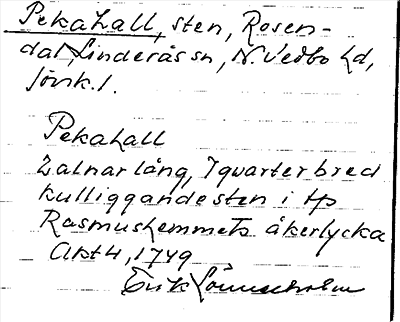 Pekahall, sten, Rosen-
dal, Linderås sn, N. Vedbo hd,
Jönk. l.
Pekahall
2 alnar lång, 7 quarter bred
kulliggande sten i
Rasmushemmets åkerlycka
Akt 4, 1749
Erik Lönnerholm